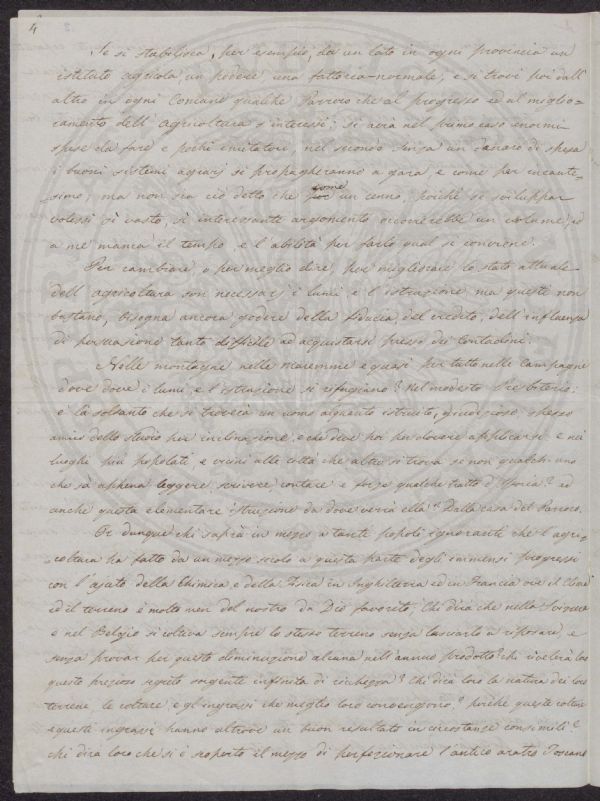 4
Se si stabilisca, per esempio, da un lato in ogni provincia un
istituto agricola, un podere, una fattoria-normale, e si trovi poi dall'
altro in ogni Comune qualche Parroco che al progresso ed al miglio=
ramento dell'agricoltura s'interessi: si avrà nel primo caso enormi
spese da fare e pochi imitatori, nel secondo senza un danaro di spesa
i buoni sistemi agrarj si propagheranno a gara, e come per incante-
simo; ma non sia ciò detto che come un cenno, poichè se sviluppar
volessi sì vasto, sì interessante argomento occorrerebbe un volume, ed
a me manca il tempo, e l'abilità per farlo qual si conviene.
Per cambiare, o per meglio dire, per migliorare lo stato attuale
dell'agricoltura son necessarj i lumi, e l'istruzione ma questi non
bastano, bisogna ancora godere della fiducia, del credito, dell'influenza
di persuasione tanto difficile ad acquistarsi presso dei contadini.
Nelle montagne nelle maremme e quasi per tutto nelle campagne
dove dove i lumi, e l'istruzione si rifugiano? Nel modesto Presbiterio:
è là soltanto che si troverà un uomo alquanto istruito, giudizioso, spesso
amico dello studio per inclinazione, e che deve poi per dovere applicarsi e nei
luoghi più popolati e vicini alle città che altro si trova se non qualch'uno
che sà appena leggere, scrivere, contare e forse qualche tratto d'Istoria? ed
anche questa elementare istruzione da dove verrà ella? Dalla casa del Parroco.
Or dunque chi saprà in mezzo a tanti popoli ignoranti che l'agri-
coltura ha fatto da un mezzo secolo a questa parte degli immensi progressi
con l'ajuto della Chimica e della Fisica in Inghilterra ed in Francia ove il clima
ed il terreno è molto men del nostro da Dio favorito; Chi dirà che nella Svizzera
e nel Belgio si coltiva sempre lo stesso terreno senza lasciarlo a riposare, e
senza provar per questo diminuzione alcuna nell'annuo prodotto? chi rivelerà loro
questo prezioso segreto sorgente infinita di ricchezza? Chi dirà loro la natura dei loro
terreni, le colture, e gl'ingrassi che meglio loro convengono? perchè queste colture
e questi ingrassi hanno altrove un buon resultato in circostanze consimili?
chi dirà loro che si è scoperto il mezzo di perfezionare l'antico aratro Toscano